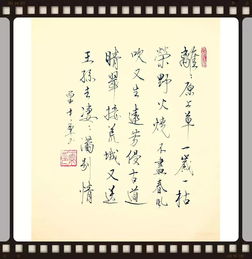 離〻原上草一歲一枯
榮野火燒不盡春風
吹又生遠芳侵古道
晴翠接荒城又送
王孫去萋〻滿別情